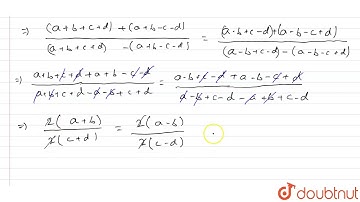 ⇒ (a+b+c+d) + (a+b-c-d) / (a+b+c+d) - (a+b-c-d) = (a-b+c-d)+(a-b-c+d) / (a-b+c-d) - (a-b-c+d)
⇒ a+b+c+d+a+b-c-d / a+b+c+d-a-b+c+d = a-b+c-d+a-b-c+d / a-b+c-d-a+b+c-d
⇒ 2(a+b) / 2(c+d) = 2(a-b) / 2(c-d)
doubtnut